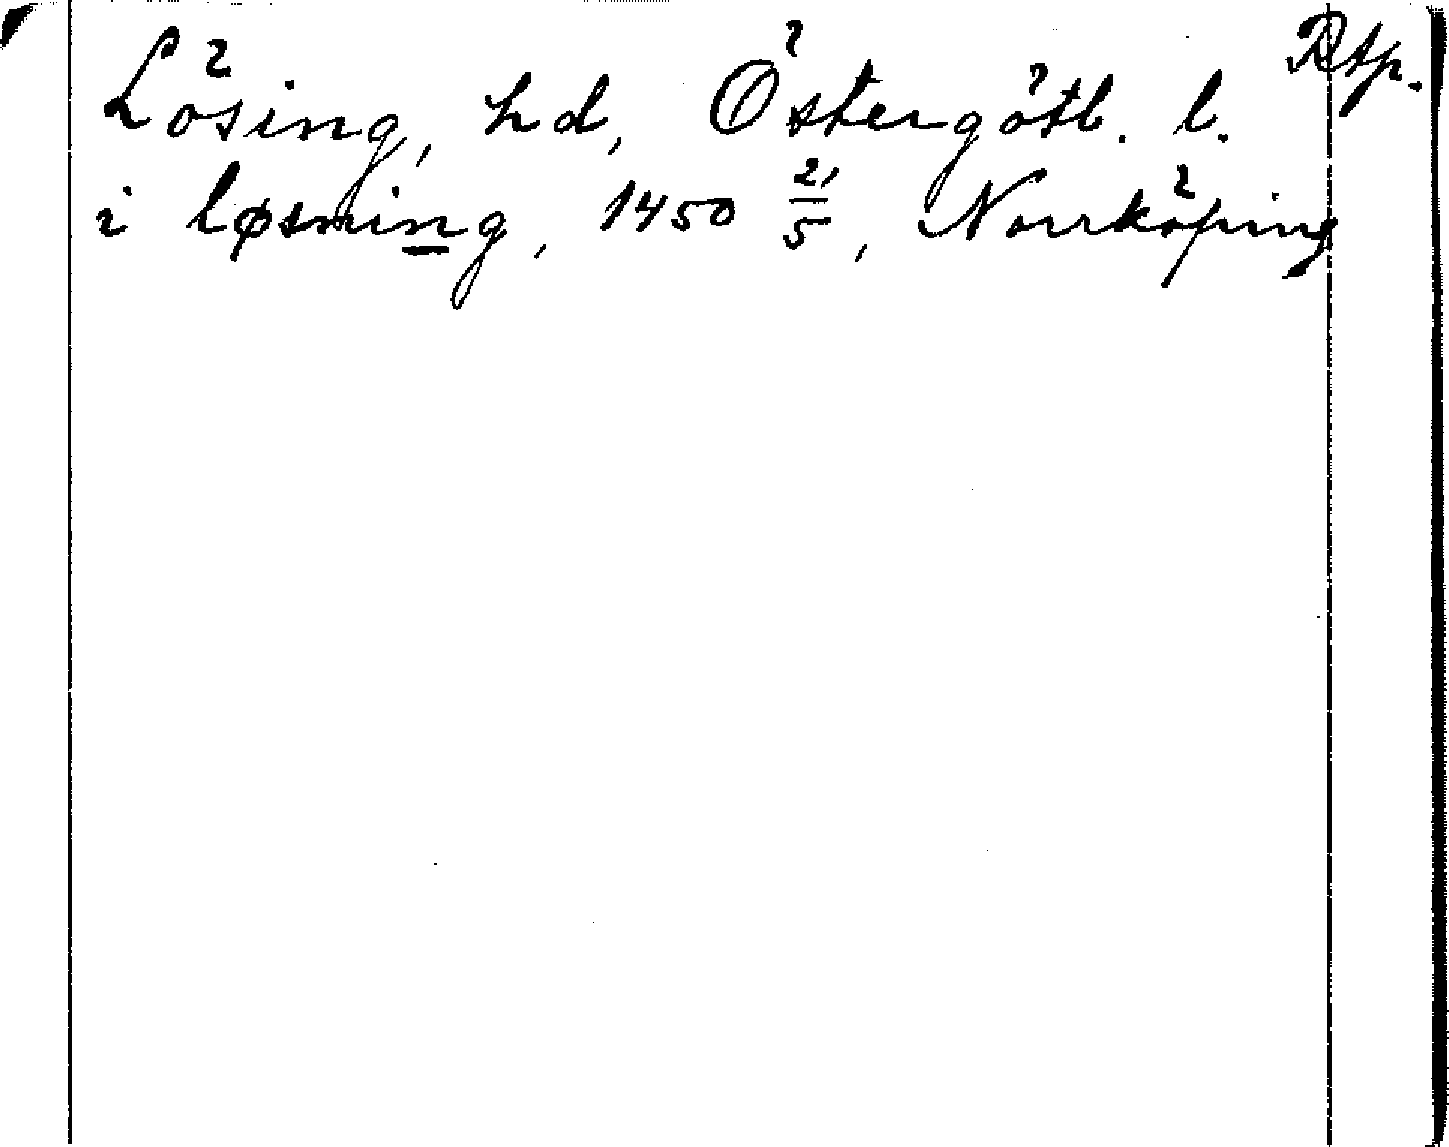 Lösing, hd, Östergötl. l. Rtp.
i løsming, 1450 21/5, Norrköping